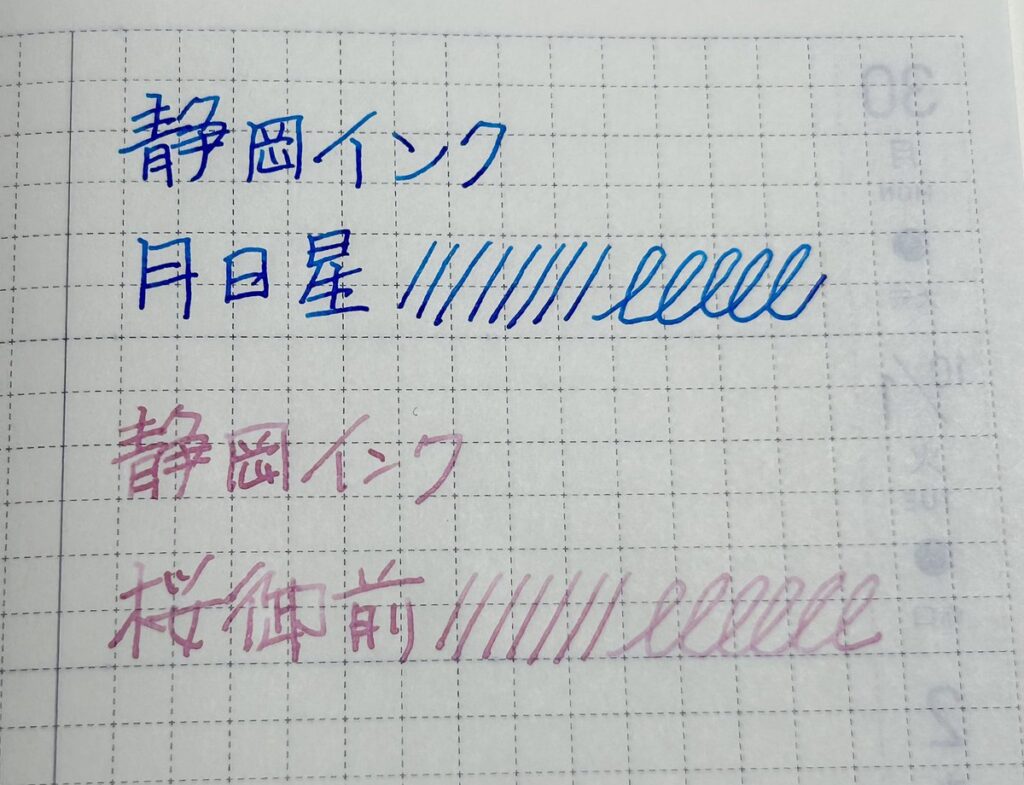 静岡インク
月日星
静岡インク
桜御前
30
月
MON
10/1
火
TUE
2